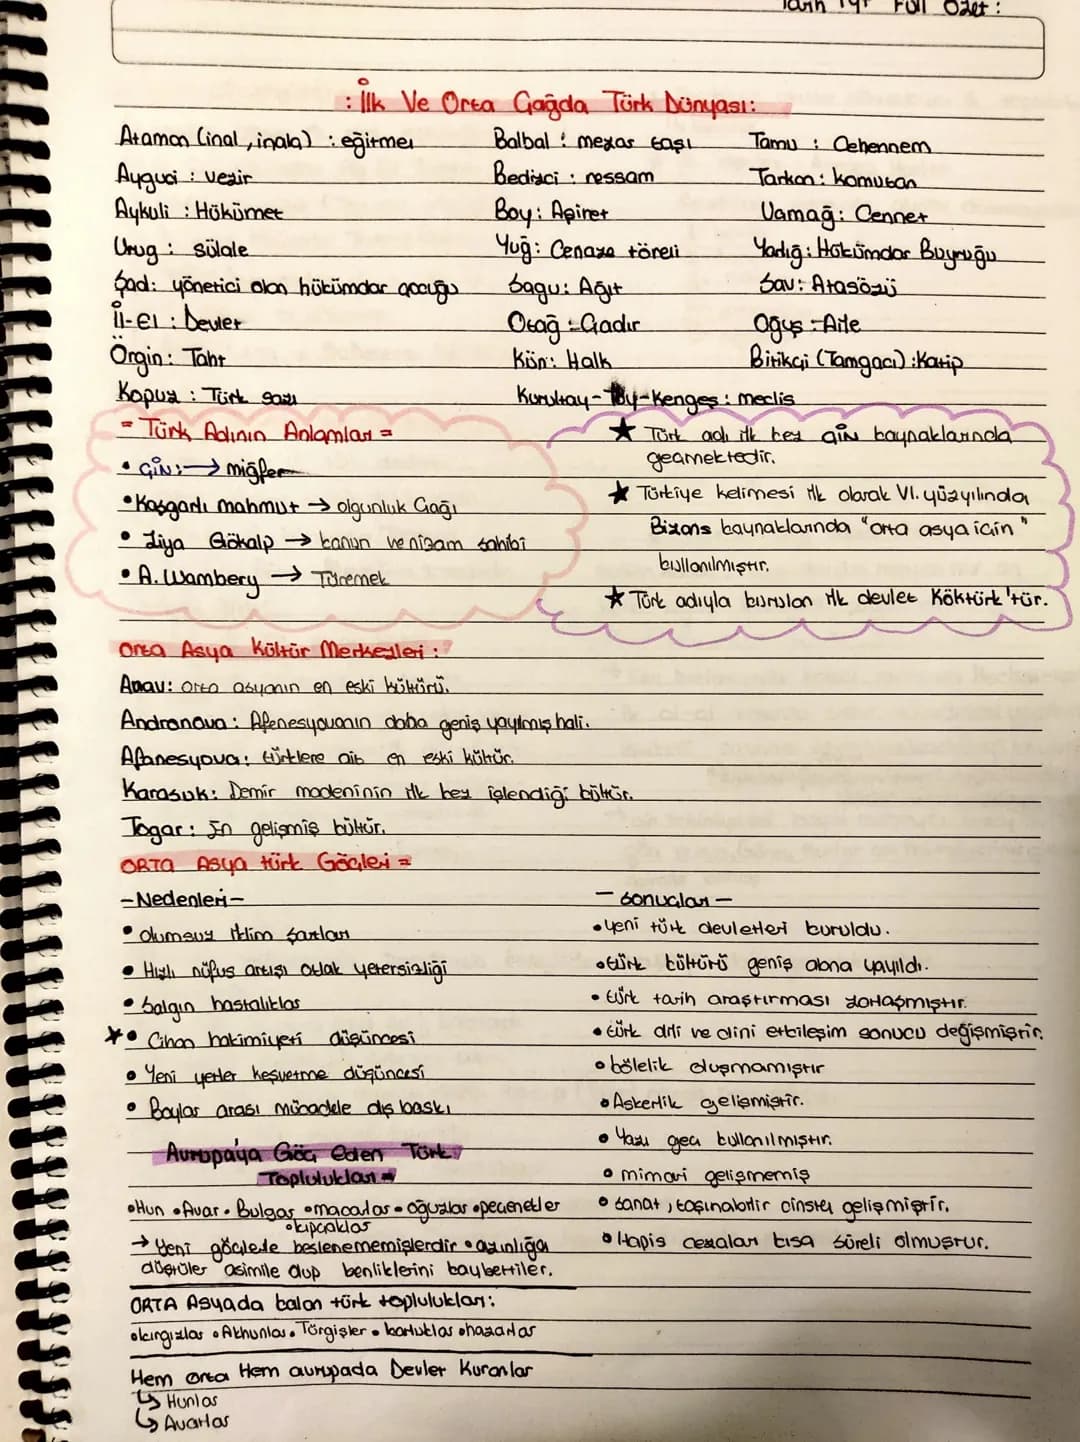 Tarih Tyt Full Özet :
: İlk Ve Orta Çağda Türk Dünyası:
Ataman (inal, inala) : eğitmeı Balbal : mezar taşı Tamu : Cehennem
Ayguci : vezir Bedizci : ressam Tarkan: komutan
Aykuli : Hükümet Boy: Aşiret Uamağ: Cennet
Urug : sülale Yuğ: Cenaze töreli Yarlığ: Hükümdar Buyruğu
Şad: yönetici olan hükümdar çocuğu Sagu: Ağıt Sav: Atasözü
İl-El : Devlet Otağ : Çadır Oğuş : Aile
Örgin: Taht Kün: Halk Bitikçi (Tamgacı) :Katip
Kopuz : Türk sazı Kurultay-Toy-Kengeş : meclis
= Türk Adının Anlamları =
• ÇİN: → miğfer
• Kaşgarlı mahmut → olgunluk Çağı
• Ziya Gökalp → kanun ve nizam sahibi
• A. Wambery → Türemek
★ Türk adı ilk kez ÇİN kaynaklarında
geçmektedir.
★ Türkiye kelimesi ilk olarak VI. yüzyılında
Bizans kaynaklarında "orta asya için"
kullanılmıştır.
★ Türk adıyla kurulan ilk devlet Köktürk'tür.
Orta Asya Kültür Merkezleri :
Anav: orta asyanın en eski kültürü.
Andronova : Afenesyovanın daha geniş yayılmış hali.
Afanesyova: türklere ait en eski kültür.
Karasuk: Demir madeninin ilk kez işlendiği kültür.
Togar : En gelişmiş kültür.
ORTA Asya türk Göçleri =
-Nedenleri-
• olumsuz iklim şartları
• Hızlı nüfus artışı otlak yetersizliği
• Salgın hastalıklar
★• Cihan hakimiyeti düşüncesi
• Yeni yerler keşvetme düşüncesi
• Boylar arası mücadele dış baskı
- Sonuçları -
• yeni türk devletleri kuruldu.
• türk kültürü geniş alana yayıldı.
• türk tarih araştırması zorlaşmıştır.
• türk dili ve dini etkileşim sonucu değişmiştir.
• kölelik oluşmamıştır
• Askerlik gelişmiştir.
• Yazı geç kullanılmıştır.
• mimari gelişmemiş
• Sanat, taşınabilir cinste gelişmiştir.
• Hapis cezaları kısa süreli olmuştur.
Avrupa'ya Göç Eden Türk
Toplulukları =
•Hun •Avar • Bulgar •macarlar • oğuzlar •peçenekler
•kıpçaklar
→ Yeni göçlerle beslenememişlerdir • azınlığa
düştüler asimile olup benliklerini kaybettiler.
ORTA Asyada kalan türk toplulukları:
•kırgızlar • Akhunlar • Türgişler • karluklar •hazarlar
Hem Orta Hem avrupada Devlet Kuranlar
↳ Hunlar
↳ Avarlar